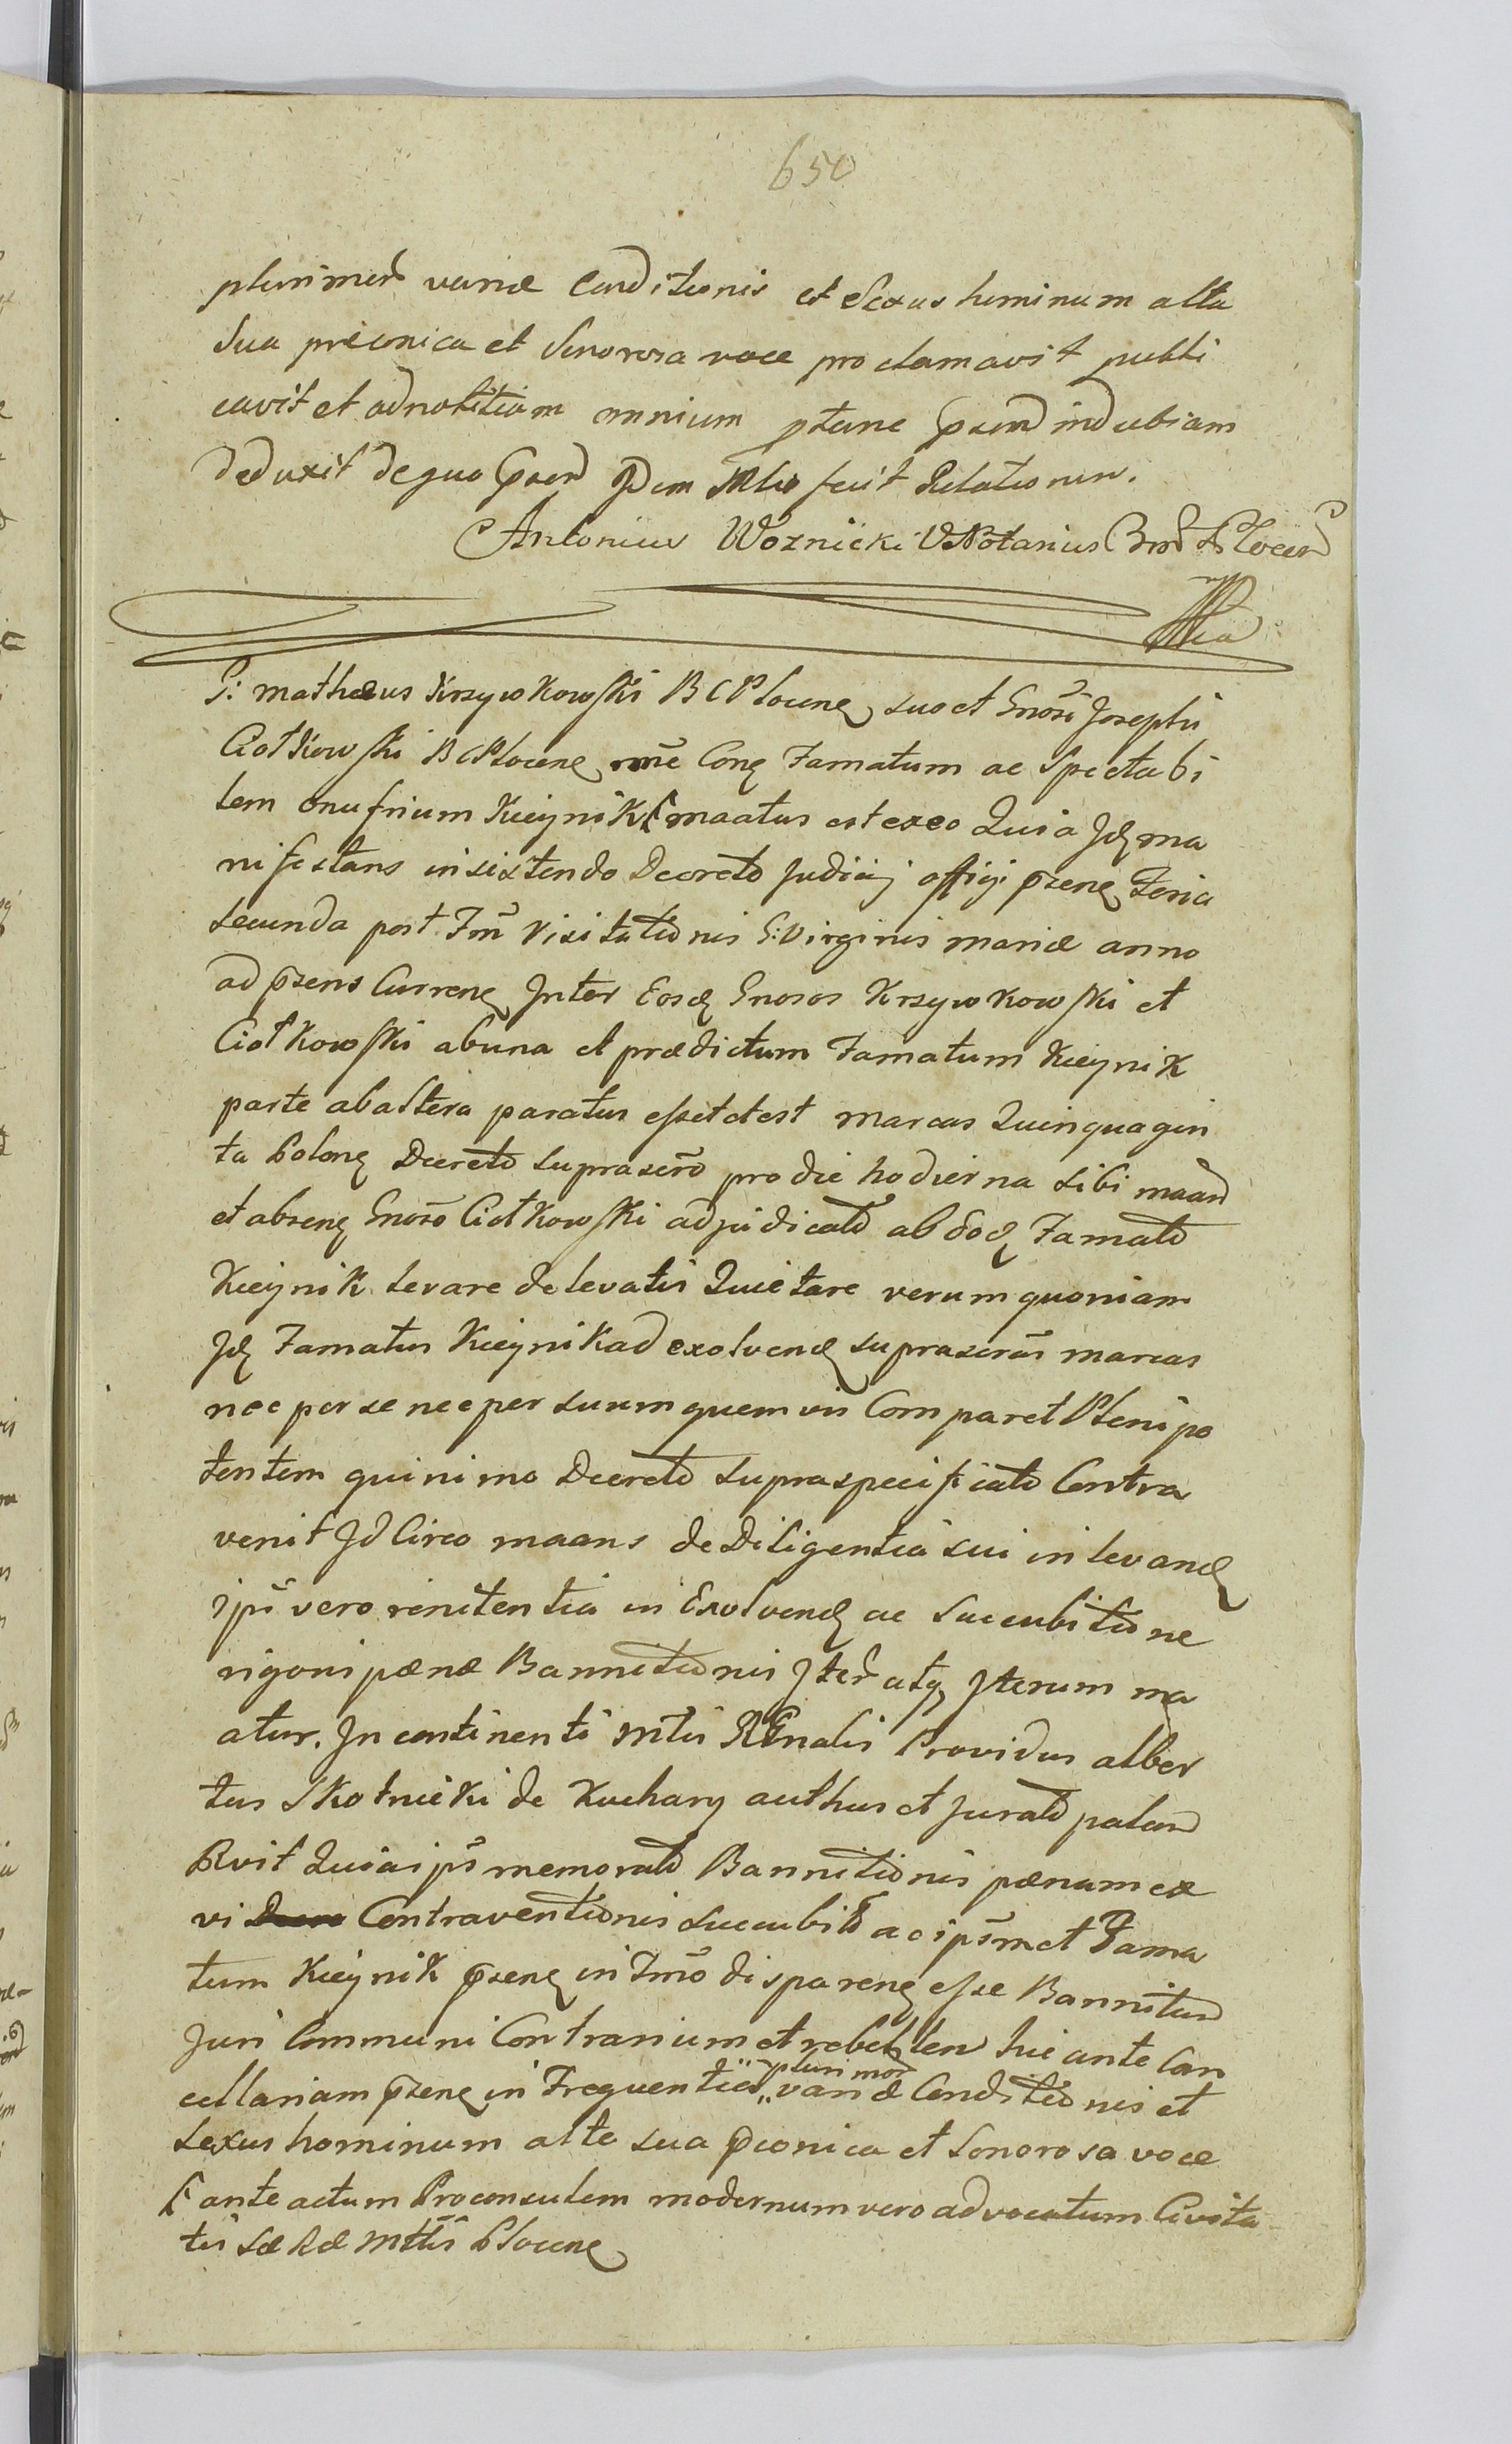 650
plurimor variæ Conditionis et Sexus hominum alta
sua preconica et Sonorosa voce proclamavit publi
cavit et ad notitiam omnium plane pnem indubiam
deduxit de quo pnem Idem Mlis fecit Relationem.
Antonius Woznicki VNotarius Plocen
G: Mathæus Krzywkowski B C Plocenę suo et Gnosi Josephi
Ciotkowski B C Plocenę nñe Conę Famatum ac Spectabi
lem Onufrium Kieynik maatus est ex eo Quia Idę ma
nifestans insistendo Decreto Judicij officij pzenę Feria
secunda post Fm̃ Visitationis S: Virginis Mariæ anno
ad pzens Currenę Inter Eosdę Gnosos Krzywkowski et
Ciotkowski ab una et prædictum Famatum Kieynik
parte ab altera paratus esset et est marcas Quinquagin
ta Polonę Decreto suprascrõ pro die hodierna sibi maan
et absenę Gnoso Ciotkowski adjudicato ab Eodę Famato
Kieynik levare de levatis Quietare verum quoniam
Idę Famatus Kieynik ad exolvendę suprascras marcas
nec per se nec per suum quemvis Comparet Plenipo
tentem quinimo Decreto supraspecificato Contra
venit Id Circo maans de Diligentia sui in levandę
ipsi vero renitentia in Exolvendę ac succubitione
rigori pænæ Bannitionis Iter atq Iterum ma
atur. In continenti Mlis RGnalis Providus alber
tus Skotnicki de Kuchary authus et jurato palam
Rvit Quia ipse memorato Bannitionis pænam ex
vi Contraventionis succubito ac ipsm̃et Fama
tum Kieynik pzenę in Tm̃o disparenę esse Bannitum
Juri Communi Contrarium et rebellem hic ante Can
cellariam pzenę in Frequentia plurimor variæ Conditionis et
sexus hominum alta sua pconica et Sonorosa voce
ante actum Proconsulem modernum vero advocatum Civita
tis Sæ Ræ Mttis Plocenę